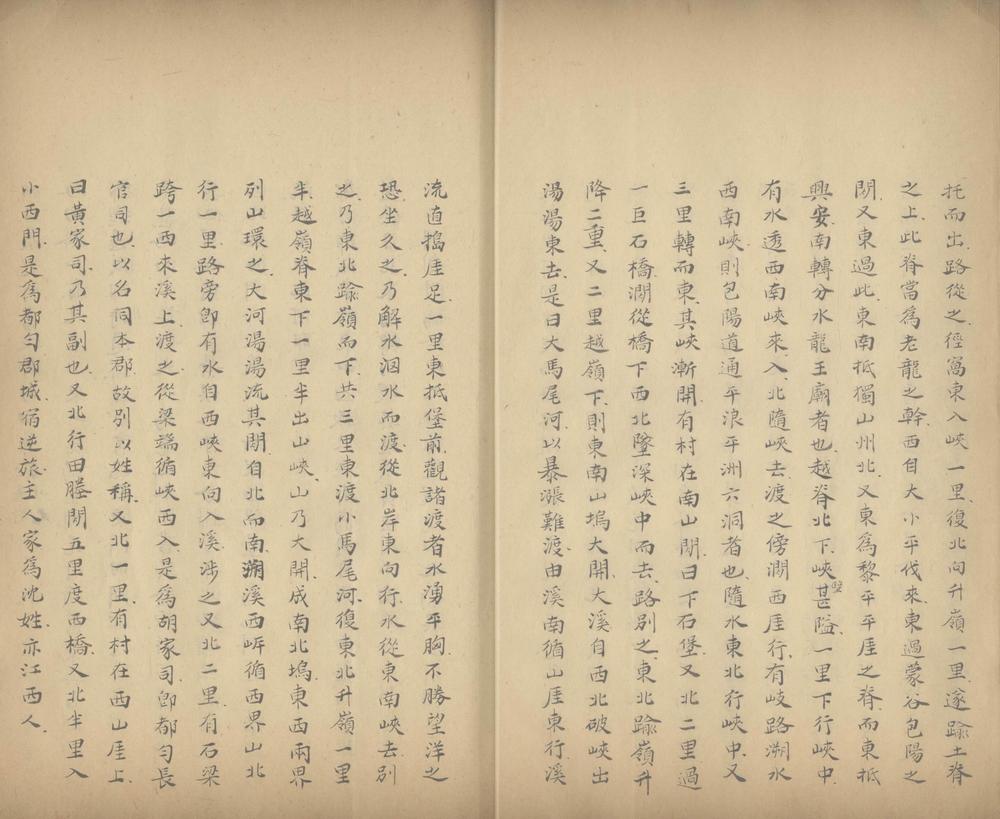 托而出路從之徑窩東入峽一里復北向升嶺一里遂踰土脊
之上此脊當爲老龍之幹西自大小平伐來東過蒙谷包陽之
閒又東過此東南抵獨山州北又東爲黎平平厓之脊而東抵
興安南轉分水龍王廟者也越脊北下峽壁甚隘一里下行峽中
有水透西南峽來入北隨峽去渡之傍澗西厓行有岐路溯水
西南峽則包陽道通平浪平洲六洞者也隨水東北行峽中又
三里轉而東其峽漸開有村在南山閒曰下石堡又北二里過
一巨石橋澗從橋下西北墜深峽中而去路別之東北踰嶺升
降二重又二里越嶺下則東南山塢大開大溪自西北破峽出
湯湯東去是曰大馬尾河以暴漲難渡由溪南循山厓東行溪
流直搗厓足一里東抵堡前觀諸渡者水湧平胸不勝望洋之
恐坐久之乃解水泅水而渡從北岸東向行水從東南峽去別
之乃東北踰嶺而下共三里東渡小馬尾河復東北升嶺一里
半越嶺脊東下一里半出山峽山乃大開成南北塢東西兩界
列山環之大河湯湯流其閒自北而南溯溪西岸循西界山北
行一里路旁卽有水自西峽東向入溪涉之又北二里有石梁
跨一西來溪上渡之從梁端循峽西入是爲胡家司卽都勻長
官司也以名同本郡故別以姓稱又北一里有村在西山厓上
曰黃家司乃其副也又北行田塍閒五里度西橋又北半里入
小西門是爲都勻郡城宿逆旅主人家爲沈姓亦江西人